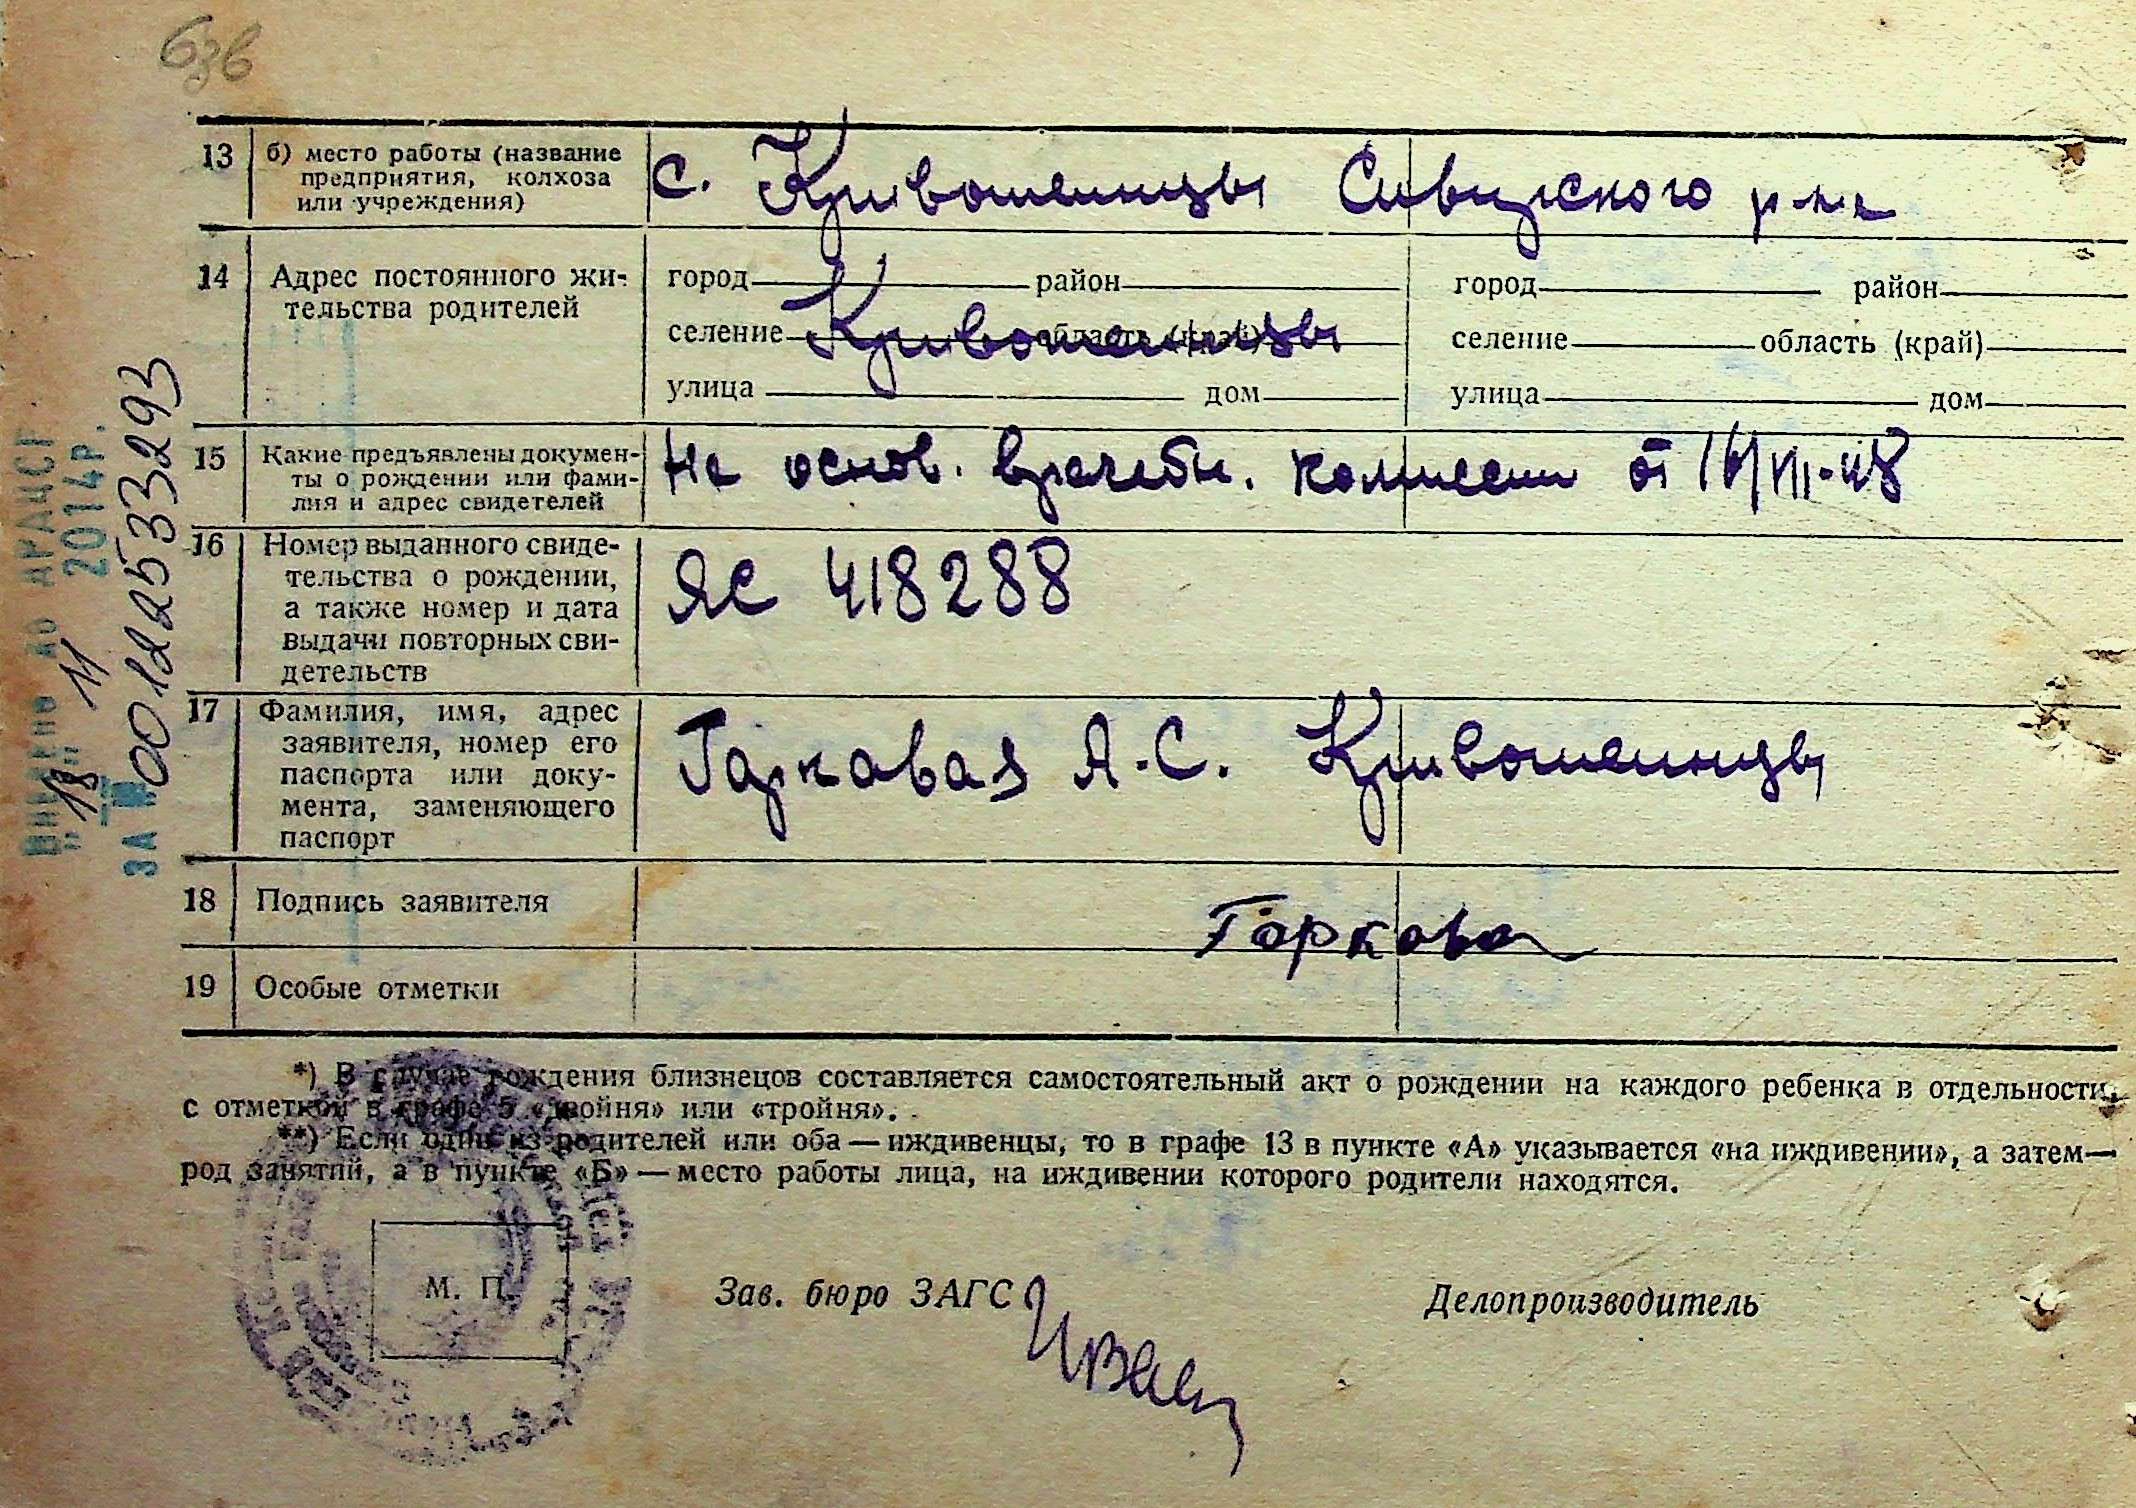 13 б) место работы (название
предприятия, колхоза
или учреждения)
с. Кривошеинцы Сквирского р-на
14 Адрес постоянного жи-
тельства родителей
город район город район
селение Кривошеинцы область (край) селение область (край)
улица дом улица дом
15 Какие предъявлены докумен-
ты о рождении или фами-
лия и адрес свидетелей
На основ. врачебн. комиссии от
16 Номер выданного свиде-
тельства о рождении,
а также номер и дата
выдачи повторных сви-
детельств
ЯС 418288
17 Фамилия, имя, адрес
заявителя, номер его
паспорта или доку-
мента, заменяющего
паспорт
Гарковая А.С. Кривошеинцы
18 Подпись заявителя
Гаркова
19 Особые отметки
*) В случае рождения близнецов составляется самостоятельный акт о рождении на каждого ребенка в отдельности,
с отметкой в графе 5 «двойня» или «тройня».
**) Если один из родителей или оба — иждивенцы, то в графе 13 в пункте «А» указывается «на иждивении», а затем—
род занятий, а в пункте «Б» — место работы лица, на иждивении которого родители находятся.
М. П.
Зав. бюро ЗАГС Делопроизводитель
Внесено до ДРАЦСГ
"18" 11 2014р.
ЗА № 00122533293